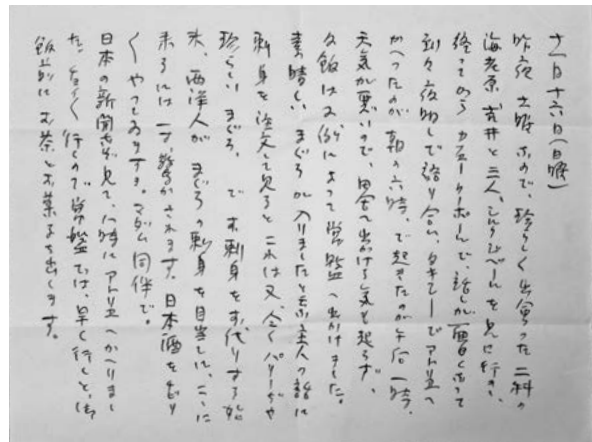 十一月十六日(日曜)
昨夜 土曜なので、珍らしく出會った二科の
海老原 荒井と三人、を見に行き、
終ってのち カフェークーポールで、話しが面白くなって
到々夜明しで語り合い、タキシーでアトリエへ
かへったのが朝の六時、で起きたのが午后一時、
天気が悪いので、田舎へ出かける気も起らず、
夕飯は又例によって常盤へ出かけました。
素晴しい まぐろが入りましたと云ふ主人の話に
刺身を注文して見ると これは又、全くパリーでや
珍らしい まぐろ、で お刺身をお代りする始
末、西洋人が まぐろの刺身を目当に、ここに
来るには一寸驚かされます。日本酒を
くやっております。マダム同伴で。
日本の新聞など見て、八時にアトリエへかへりまし
た。よく行くので常盤では、早く行くと、御
飯前に お茶とお菓子を出します。